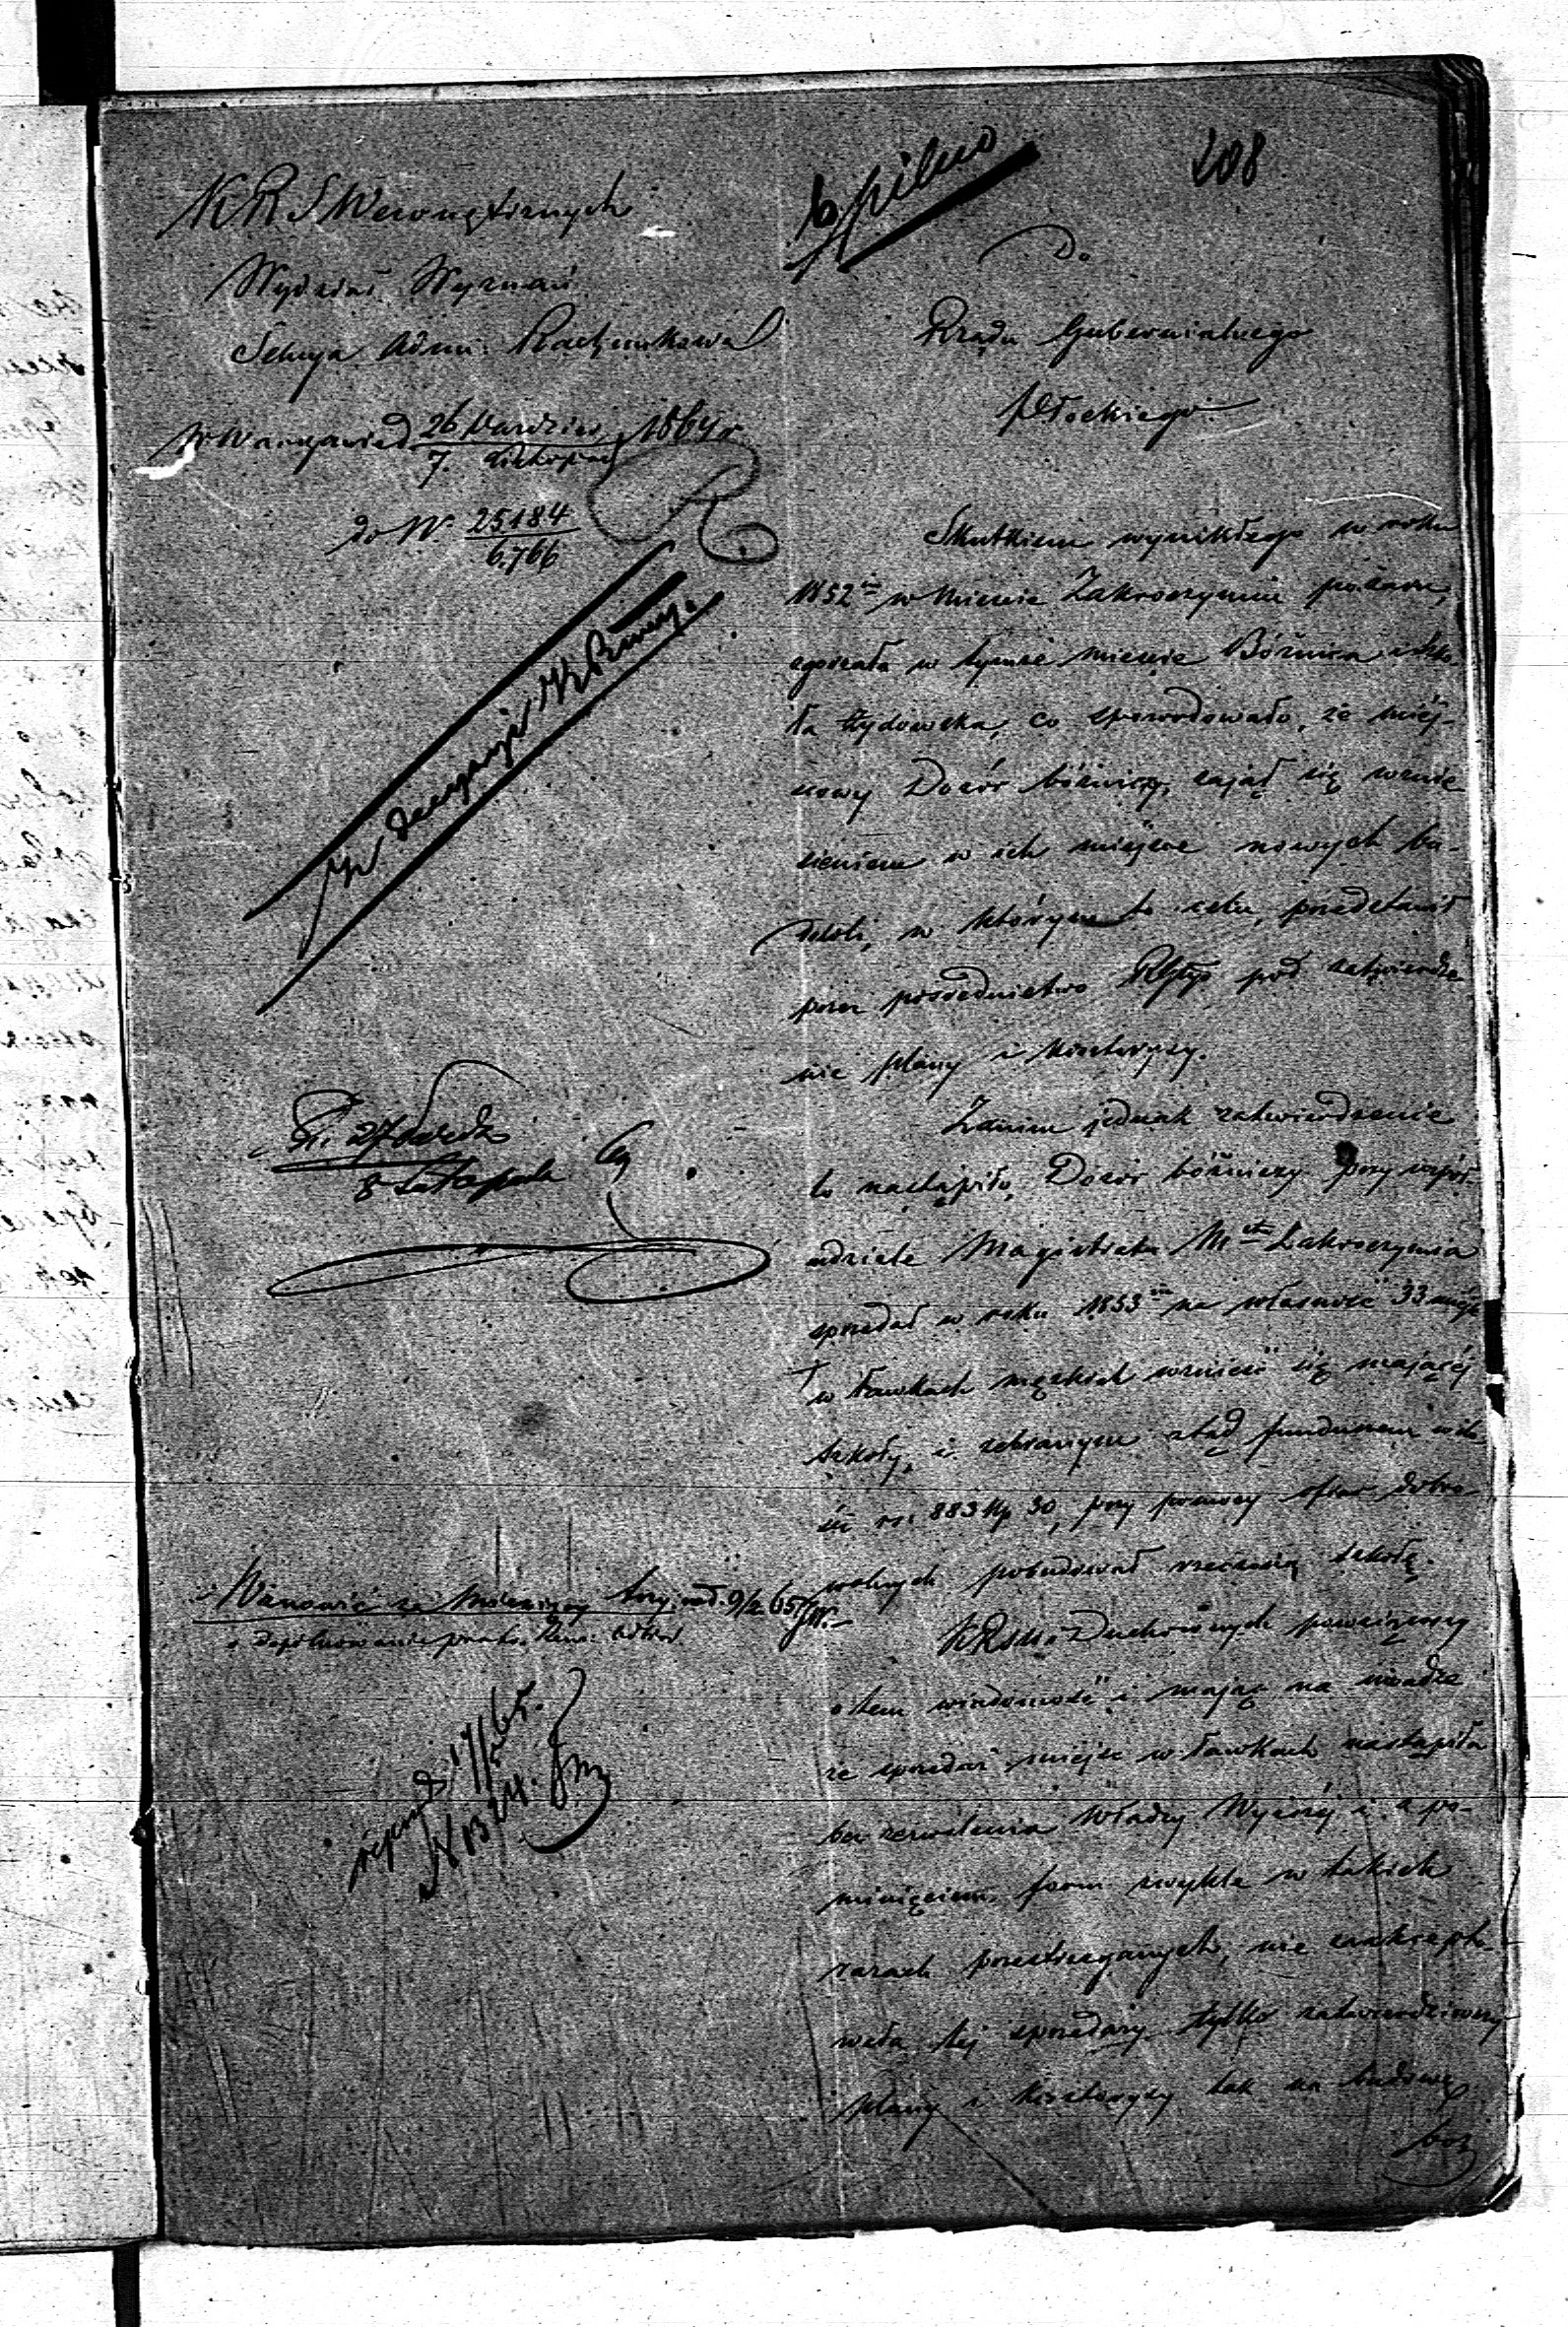 208
b. pilno
K R S Wewnętrznych
Wydział Wyznań
Sekcya Adm: Rachunkowa
w Warszawie d 26 Paździer / 7. Listopad 1864 r
do N. 25184 / 6.766
Do
Rządu Gubernialnego
Płockiego
Skutkiem wynikłego w roku
1852 m w Mieście Zakroczymiu pożaru,
zgorzała w tymże mieście Bóżnica i Szko-
ła Żydowska, co spowodowało, że miej-
scowy Dozór bóżniczy, zajął się wznie
sieniem w ich miejsce nowych bu-
dowli, w którym to celu, przedstawił
przez pośrednictwo pod zatwierdze
nie plany i kosztorysy.
Zanim jednak zatwierdzenie
to nastąpiło, Dozór bóżniczy przy współ-
udziale Magistratu M sta Zakroczymia
sprzedał w roku 1853 m na własność 33 miejsc
w ławkach męzkich wznieść się mającéj
szkoły, i zebranym ztąd funduszem w ilo-
ści rs: 883 kp 30, przy pomocy ofiar dobro-
wolnych pobudował rzeczoną szkołę.
Duchownych powziąwszy
o tem wiadomość i mając na uwadze
że sprzedaż miejsc w ławkach nastąpiła
bez zezwolenia Władzy Wyższéj i z po-
minięciem form zwykle w takich
razach przestrzeganych, nie zaakcepto-
wała téj sprzedaży, tylko zatwierdziwszy
plany i kosztorysy tak na budowę
boż
W decyzyi
27 Paźdz
8 Listopada
Wznowić 9/2 65
17/ 65.
N 1324.